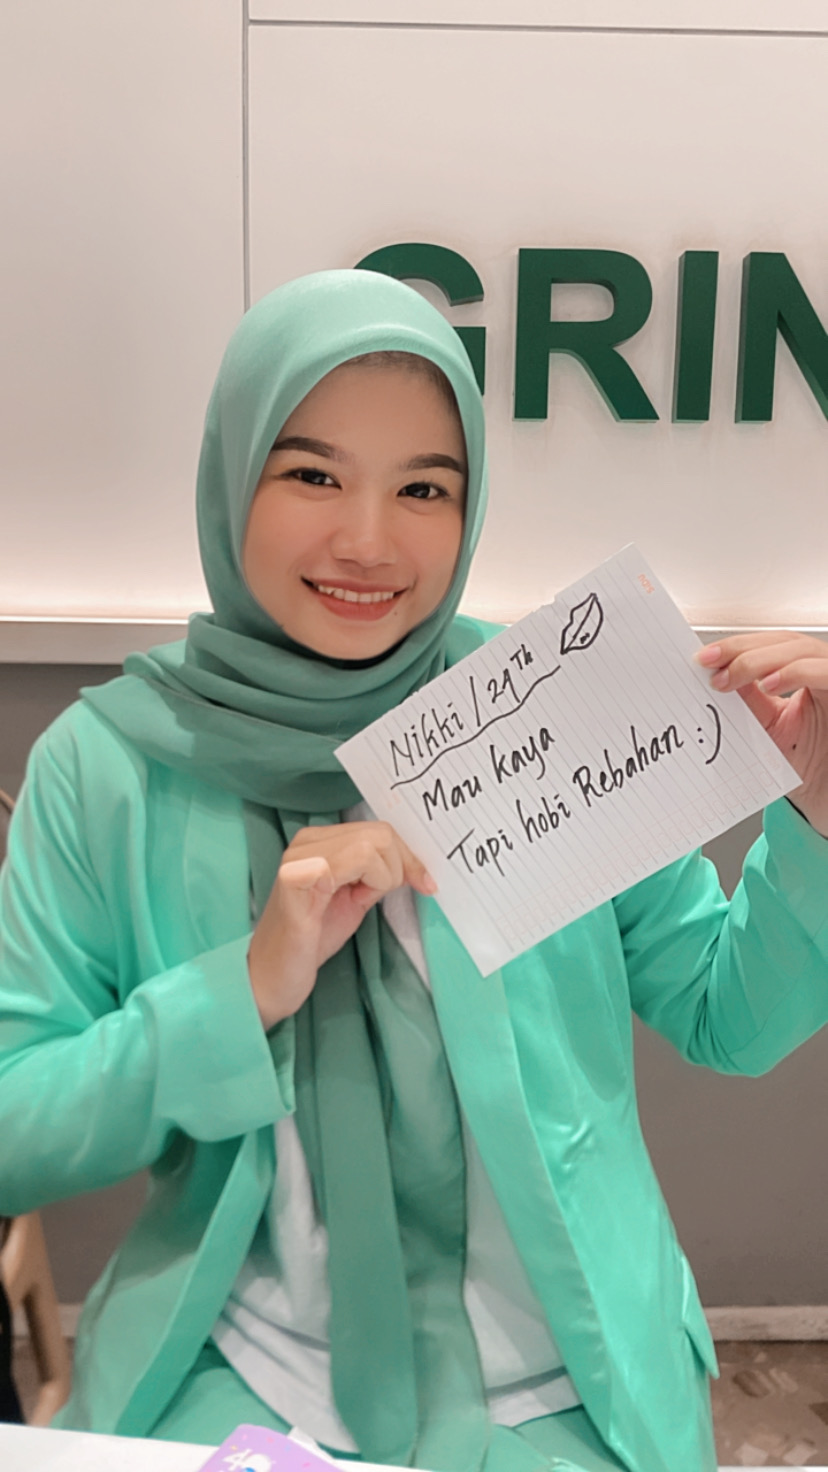 GRIN
Nikki / 29Th
Mau kaya
Tapi hobi Rebahan :)